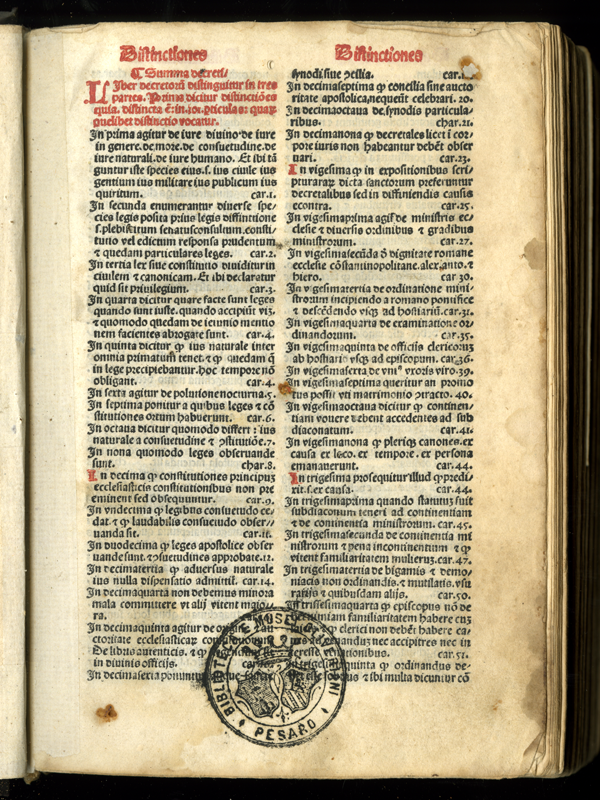 Distinctiones
¶ Summa decreti/
LIber decretorū distinguitur in tres
partes. Prima dicitur distinctiōes
quia. distincta ē: in .101. pticulas: quaꝝ
quelibet distinctio vocatur.
In prima agitur de iure diuino de iure
in genere. de more. de consuetudine. de
iure naturali. de iure humano. Et ibi tā
guntur iste species eius. s. ius ciuile ius
gentium ius militare ius publicum ius
quiritum. car.1.
In secunda enumerantur diuerse spe/
cies legis posita prius legis diffinitione
s. plebiscitum senatusconsultum. consti/
tutio vel edictum responsa prudentum
⁊ quedam particulares leges. car.2.
In tertia lex siue constitutio diuiditur in
ciuilem ⁊ canonicam. Et ibi declaratur
quid sit priuilegium. car.3.
In quarta dicitur quare facte sunt leges
quando sunt iuste. quando accipiūt viꝫ.
⁊ quomodo quedam de ieiunio mentio
nem facientes abrogate sunt. car.4.
In quinta dicitur ꝙ ius naturale inter
omnia primatum tenet. ⁊ ꝙ quedam ꝗ
in lege precipiebantur. hoc tempore nō
obligant. car.4.
In sexta agitur de polutione nocturna.5.
In septima ponitur a quibus leges ⁊ cō
stitutiones ortum habuerunt. car.6.
In octaua dicitur quomodo differt: ius
naturale a consuetudine ⁊ ꝯstitutiōe.7.
In nona quomodo leges obseruande
sunt. char.8.
In decima ꝙ constitutiones principuꝫ
ecclesiasticis constitutionibus non pre
eminent sed obsequuntur. car.9.
In vndecima ꝙ legibus consuetudo ce/
dat ⁊ ꝙ laudabilis consuetudo obser//
uanda sit. car.11.
In duodecima ꝙ leges apostolice obser
uande sunt. ⁊ ꝯsuetudines approbate.12.
In decimatertia ꝙ aduersus naturale
ius nulla dispensatio admittit̄. car.14.
In decimaquarta non debemus minora
mala committere vt alij vitent maio/
ra.
In decimaquinta agitur de
ctoritate ecclesiasticaꝝ
De libris autenticis. ⁊ ꝙ
in diuinis officijs.
In decimasexta ponuntur
Distinctiones
synodi siue ꝯcilia. car.
In decimaseptima ꝙ concilia sine aucto
ritate apostolica, nequeūt celebrari. 20.
In decimaoctaua de, synodis particula/
ribus. char.21.
In decimanona ꝙ decretales licet ī cor
pore iuris non habeantur debēt obser
uari. car.23.
In vigesima ꝙ in expositionibus scri/
pturaraꝝ dicta sanctorum preferuntur
decretalibus sed in diffiniendis causis
econtra. car.25.
In vigesimaprima agit̄ de ministris ec/
clesie ⁊ diuersis ordinibus ⁊ gradibus
ministrorum. car.27.
In vigesimasecūda ō dignitate romane
ecclesie cōstaminopolitane. alex. anto. ⁊
hiero. car 30.
In vigesimatertia de ordinatione mini/
strorum incipiendo a romano pontifice
⁊ descēdendo vsqꝫ ad hostiariū. car.31.
In vigesimaquarta de examinatione or
dinandorum. car.35.
In vigesimaquinta de officiis clericoruꝫ
ab hostiario vsqꝫ ad episcopum. car.36.
In vigesimasexta de vniꝰ vxoris viro.39.
In vigesimaseptima queritur an promo
tus possit vti matrimonio ꝯtracto. 40.
In vigesimaoctaua dicitur ꝙ continen/
tiam vouere debent accedentes ad sub
diaconatum. car.41.
In vigesimanona ꝙ pleriqꝫ canones. ex
causa ex loco. ex tempore. ex persona
emanauerunt. car.44.
In trigesima prosequitur illud ꝙ predi/
xit. s. ex causa. car.44.
In trigesimaprima quando statum fuit
subdiaconum teneri ad continentiam
⁊ de continentia ministrorum. car.45.
In trigesimasecunda de continentia mi
nistrorum ⁊ pena incontinentum ⁊ ꝙ
vitent familiaritatem mulierū. car.47.
In trigesimatertia de bigamis ⁊ demo/
niacis non ordinandis. ⁊ mutilatis. vsu
rarijs ⁊ quibusdam alijs. car.50.
In trigesimaquarta ꝙ episcopus nō de
familiaritatem habere cuꝫ
⁊ ꝙ clerici non debēt habere ca/
nec accipitres nec in
car.51.
In trigesimaquinta ꝙ ordinandus de/
⁊ ibi multa dicuntur cō
BIBLIOTECA E MUSEI OLIVERIANI
PESARO